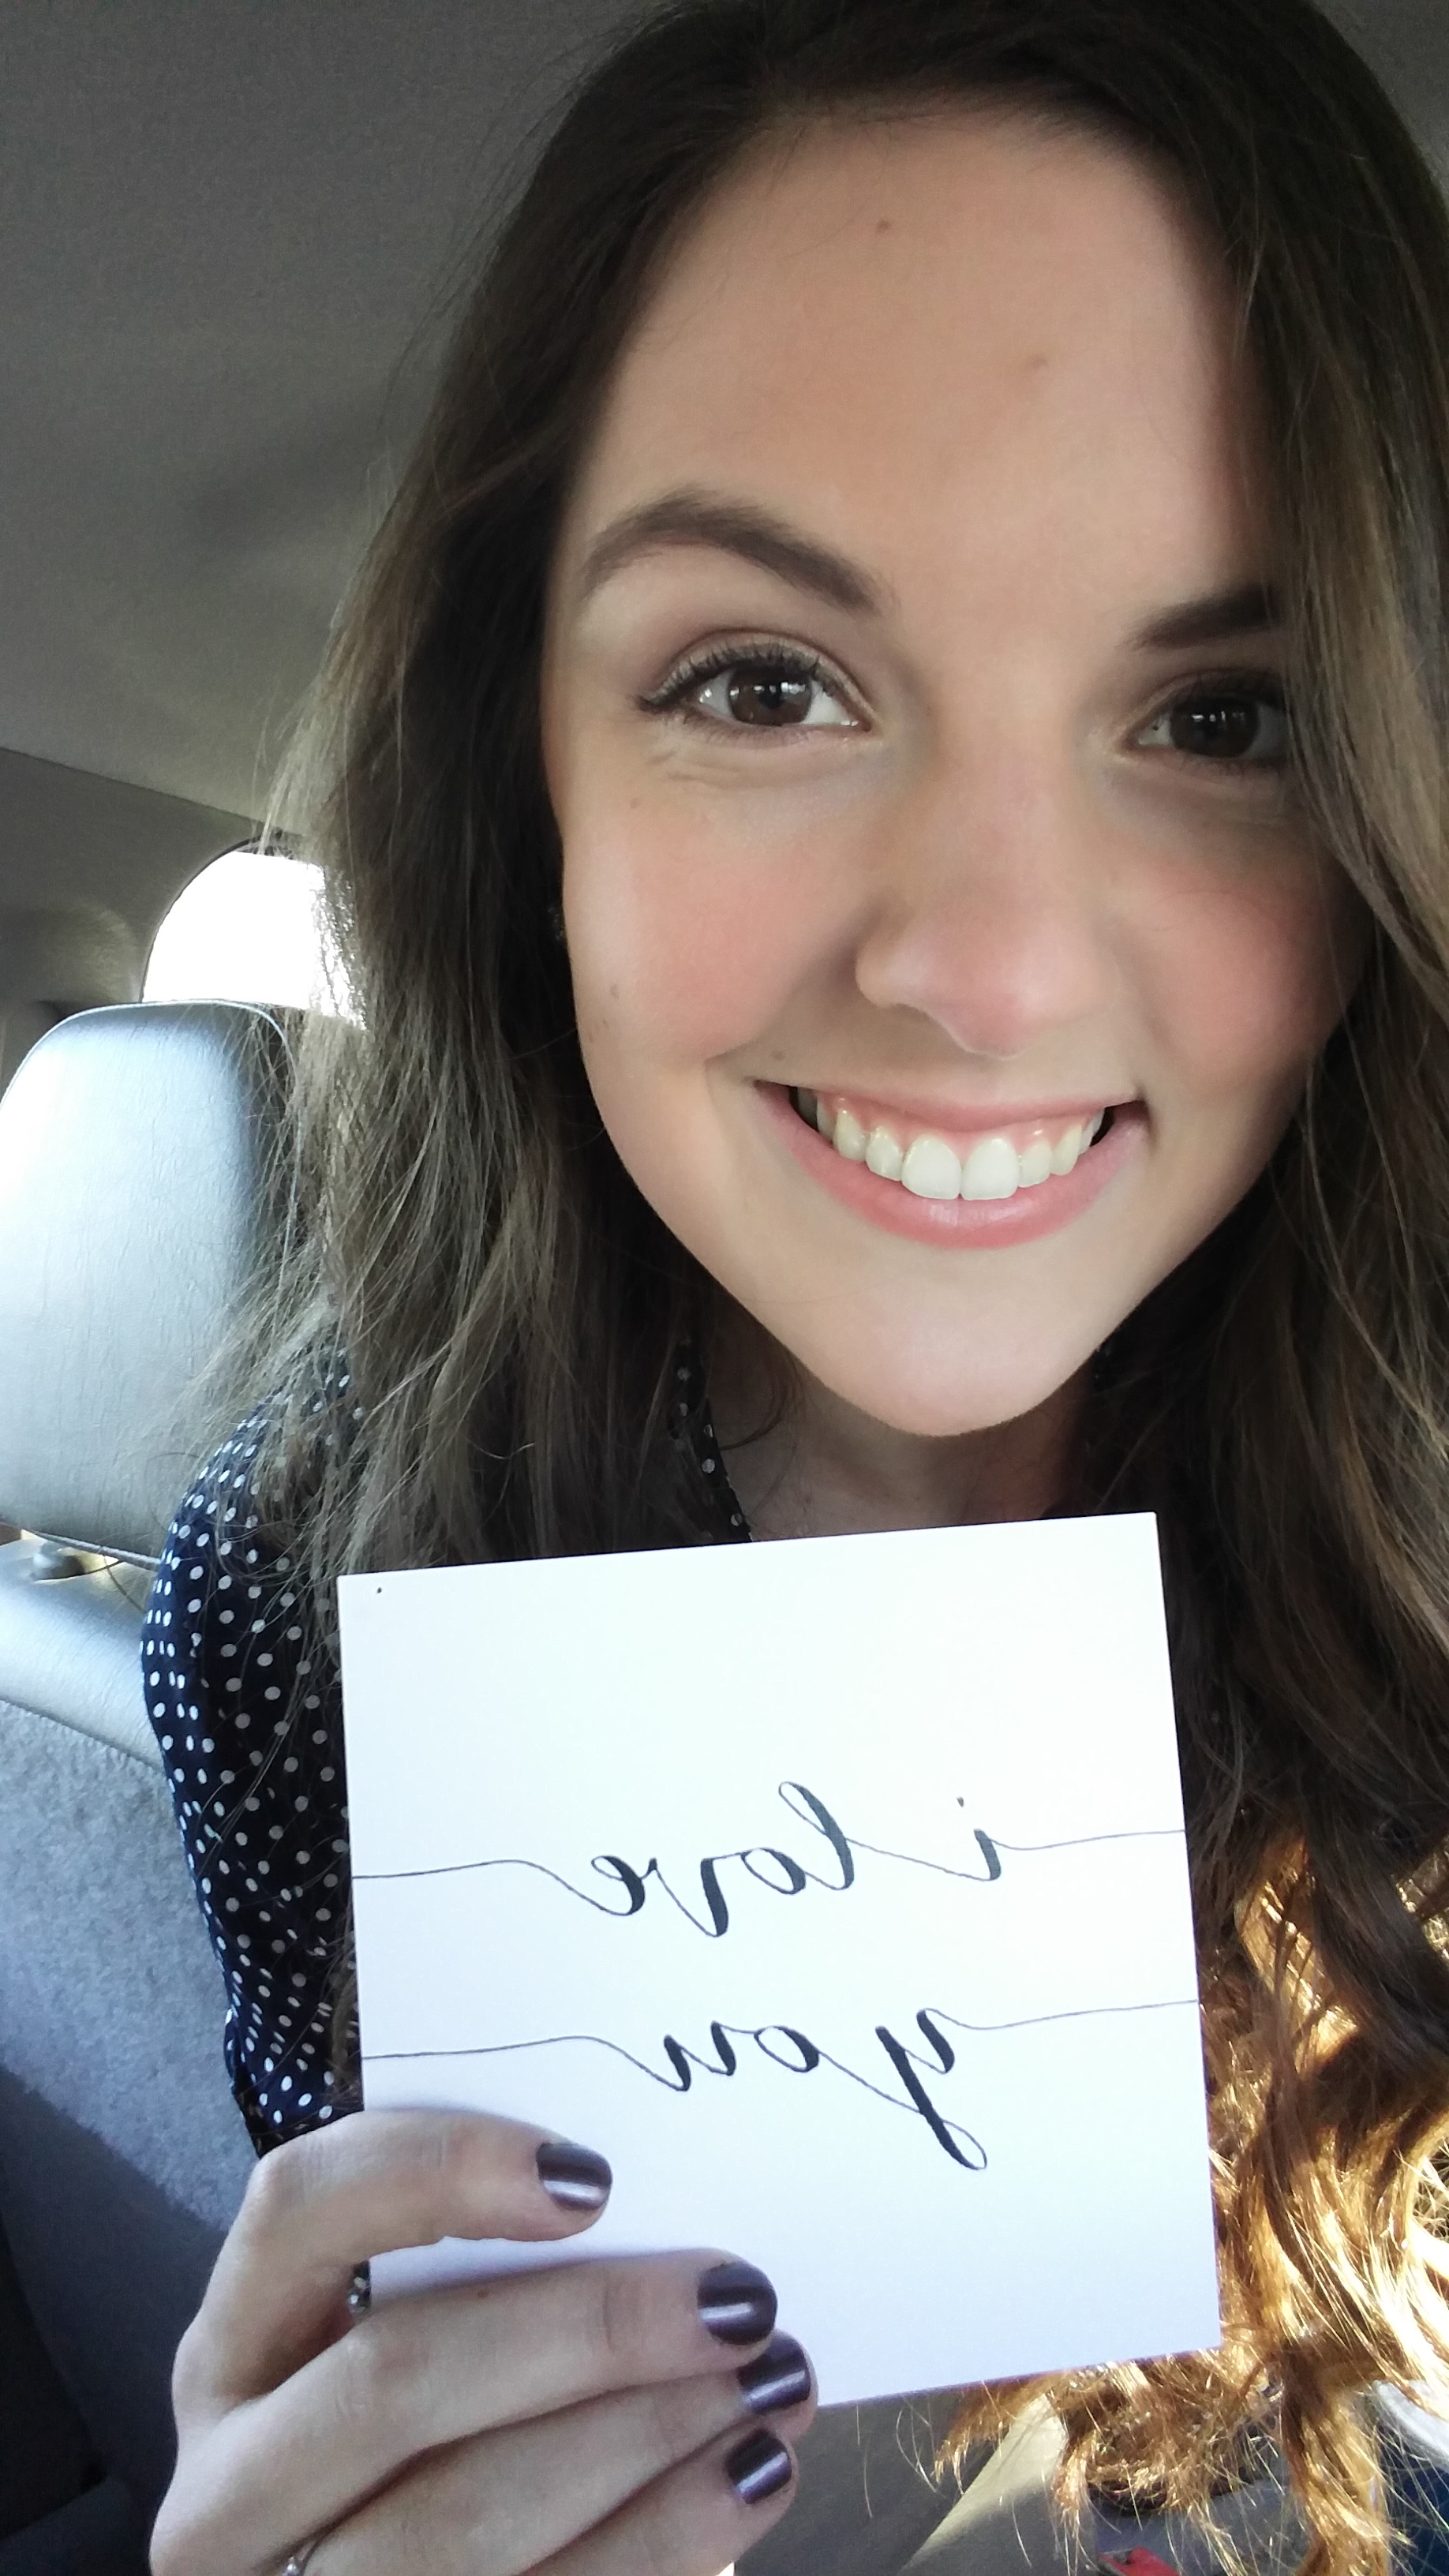 i love
you